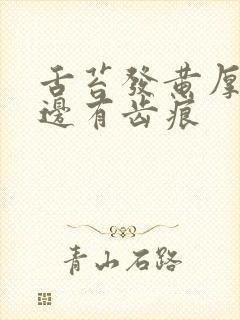 舌苔發黄厚
邊有齿痕
青山石路